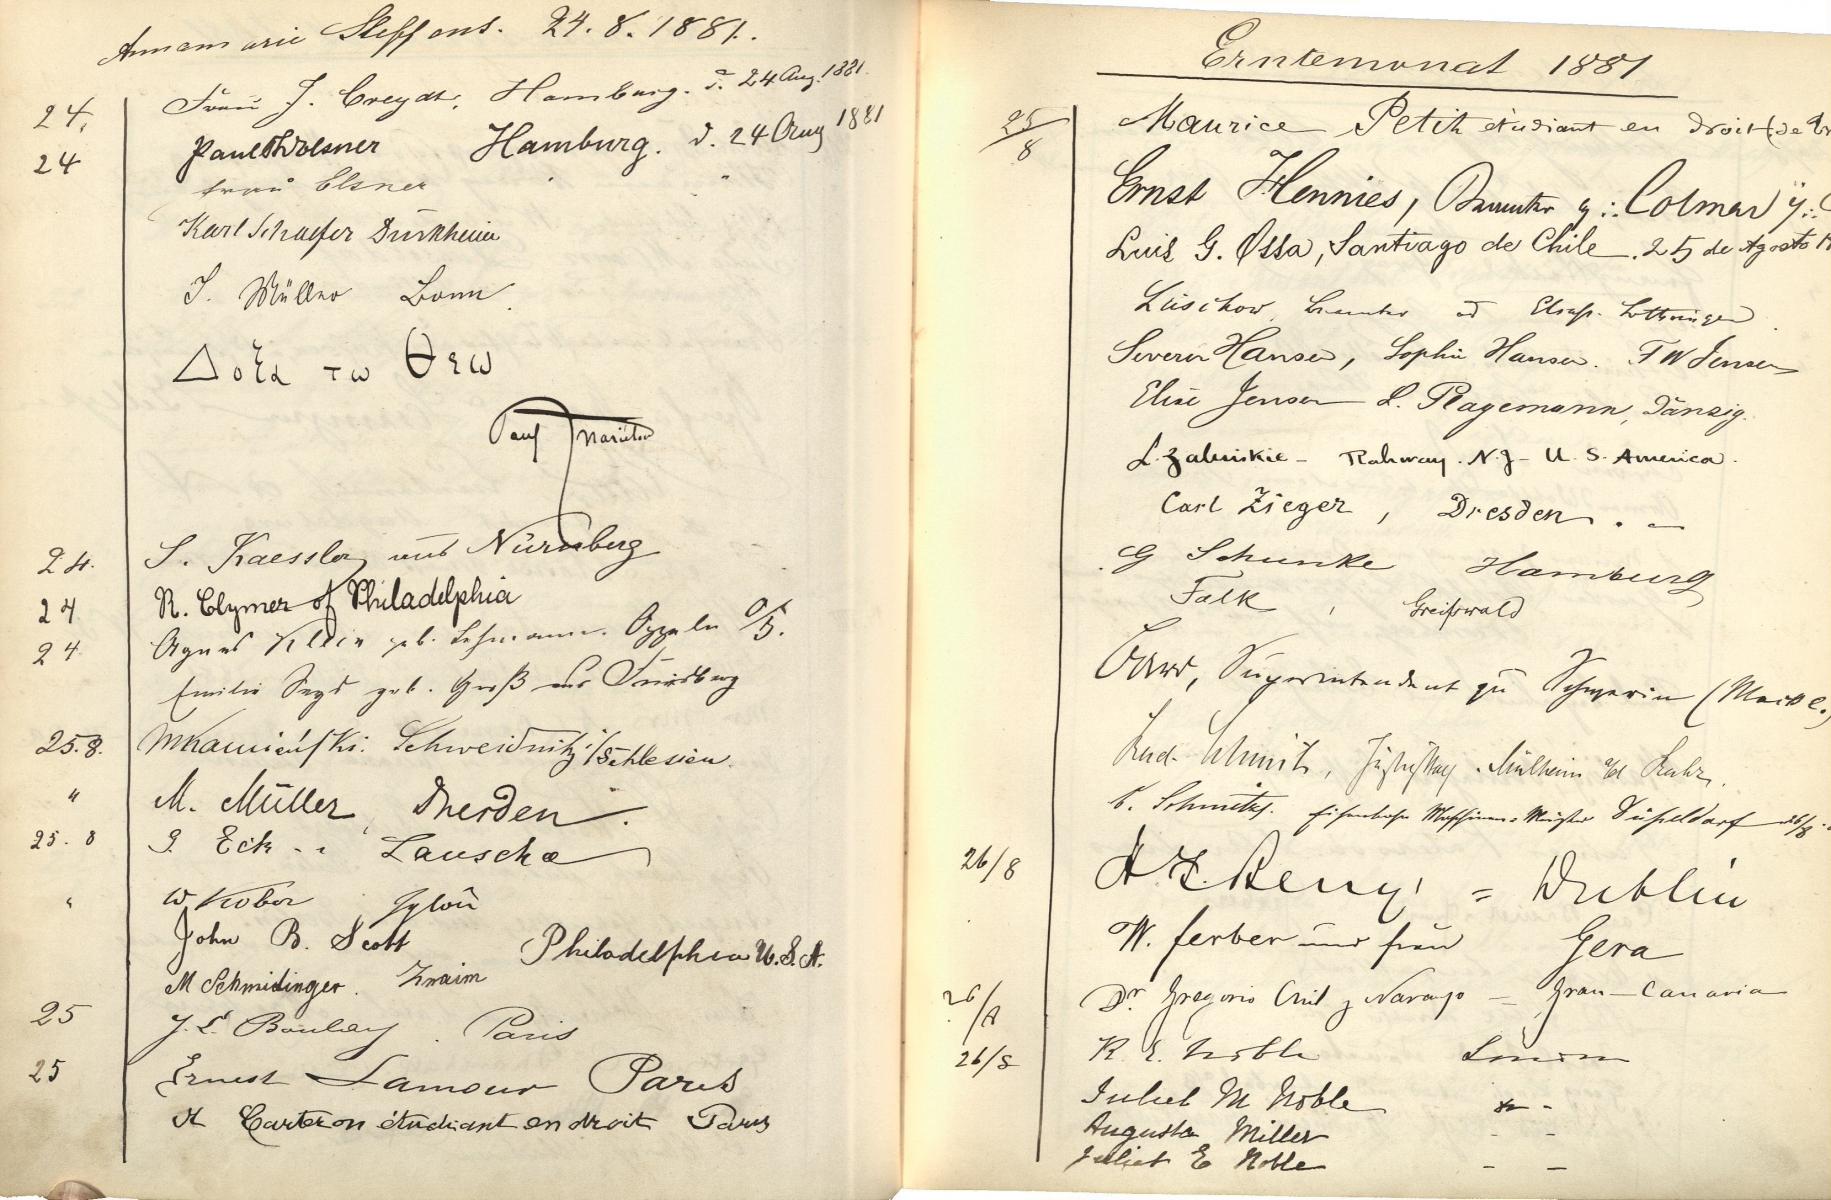 Annamarie Steffens. 24.8.1881.
24. Frau J. Creydt, Hamburg. d. 24 Aug. 1881.
24 Paul Elsner Hamburg. d. 24 Aug 1881
Frau Elsner " "
Karl Schaefer Dürkheim
J. Müller Bonn.
Δοξα τω Θεω
Paul
24. S. Kaessler aus Nürnberg
24 R. Clymer of Philadelphia
24 Agnes Klein geb. Lehmann. Oppeln O/S.
Emilie geb. Groß aus Friedberg
25.8. MKamieński. Schweidnitz i/Schlesien.
" M. Müller, Dresden.
25.8 G. Eck Lauscha
" W Kober
John B. Scott Philadelphia U.S.A.
M Schmidinger. Znaim
25 J. L. Boulay. Paris
25 Ernest Lamour Paris
A Carteron étudiant en droit Paris
Erntemonat 1881
25/8 Maurice Petit étudiant en droit (de
Ernst Hennies, Beamter a. Colmar i.
Luis G. Ossa, Santiago de Chile. 25 de Agosto
Lüschow, Beamter ad Elsass-Lothringen.
Severin Hansen, Sophie Hansen. F W Jensen
Elise Jensen L. Plagemann, Danzig.
L. Zalinskie - Rahway. N.J- U.S. America.
Carl Zieger, Dresden.
G Schunke Hamburg
Falk, Greifswald
Superintendent zu Schwerin (Meckl.)
Rud. Schmitz, Mülheim a/d Ruhr.
C. Schmitz. Eisenbahn Maschinen-Meister Düsseldorf 26/8.
26/8 Dublin
W. Ferber und Frau Gera
26/8 Dr. Gregorio Chil y Naranjo = Gran-Canaria
26/8 R. E. Noble London
Juliet M Noble " -
Augusta Miller - -
Juliet E Noble - -